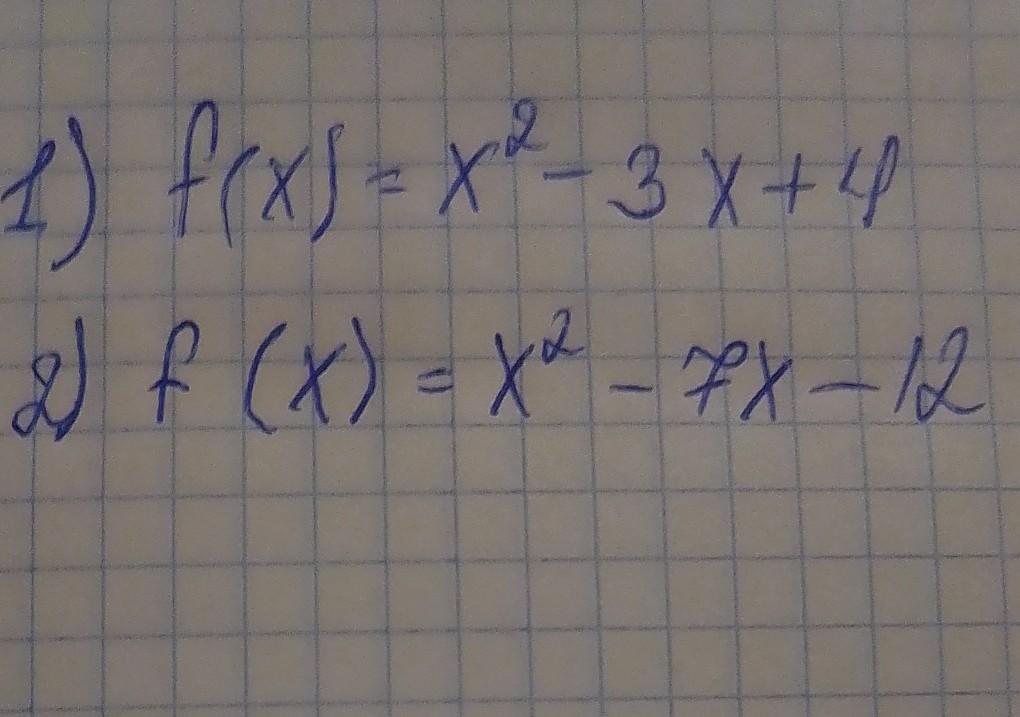 1) f(x) = x² - 3x + 4
2) f(x) = x² - 7x - 12